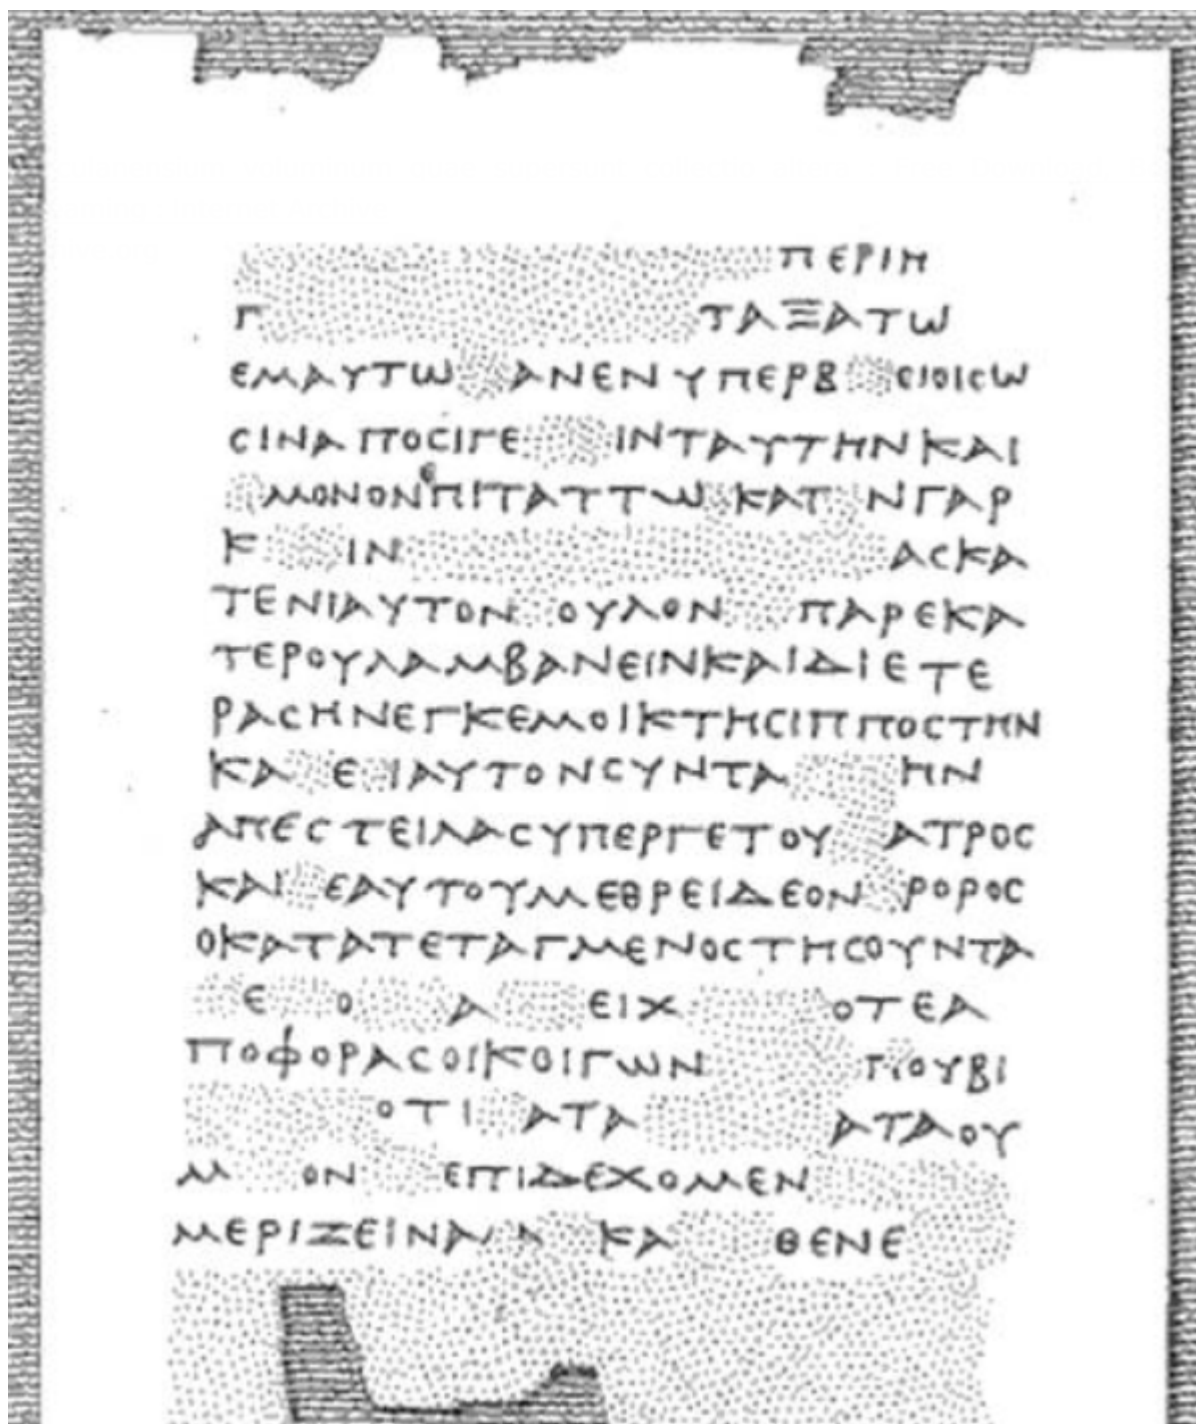 ΠΕΡΙΗ
Γ ΤΑΞΑΤΩ
ΕΜΑΥΤΩ ΑΝΕΝΥΠΕΡΒ ΕΙΟΙCΩ
CΙΝΑΠΟCΙΓΕ ΙΝΤΑΥΤΗΝΚΑΙ
ΜΟΝΟΝΕΠΙΤΑΤΤΩ ΚΑΤ ΝΓΑΡ
Κ ΙΝ ΑCΚΑ
ΤΕΝΙΑΥΤΟΝ ΟΥΛΟΝ ΠΑΡΕΚΑ
ΤΕΡΟΥΛΑΜΒΑΝΕΙΝΚΑΙΔΙΕΤΕ
ΡΑCΗΝΕΓΚΕΜΟΙΚΤΗCΙΠΠΟCΤΗΝ
ΚΑ Ε ΙΑΥΤΟΝCΥΝΤΑ ΗΝ
ΑΠΕCΤΕΙΛΑCΥΠΕΡΓΕΤΟΥ ΑΤΡΟC
ΚΑΙ ΕΑΥΤΟΥΜΕΘΡΕΙΔΕΟΝ ΡΟΡΟC
ΟΚΑΤΑΤΕΤΑΓΜΕΝΟCΤΗCΟΥΝΤΑ
Ε Ο Α ΕΙΧ ΟΤΕΑ
ΠΟΦΟΡΑCΟΙΚΟΙΓΩΝ ΓΙΟΥΒΙ
ΟΤΙ ΑΤΑ ΑΤΑΟΥ
Μ ΟΝ ΕΠΙΔΕΧΟΜΕΝ
ΜΕΡΙΖΕΙΝΑ ΚΑ ΘΕΝΕ